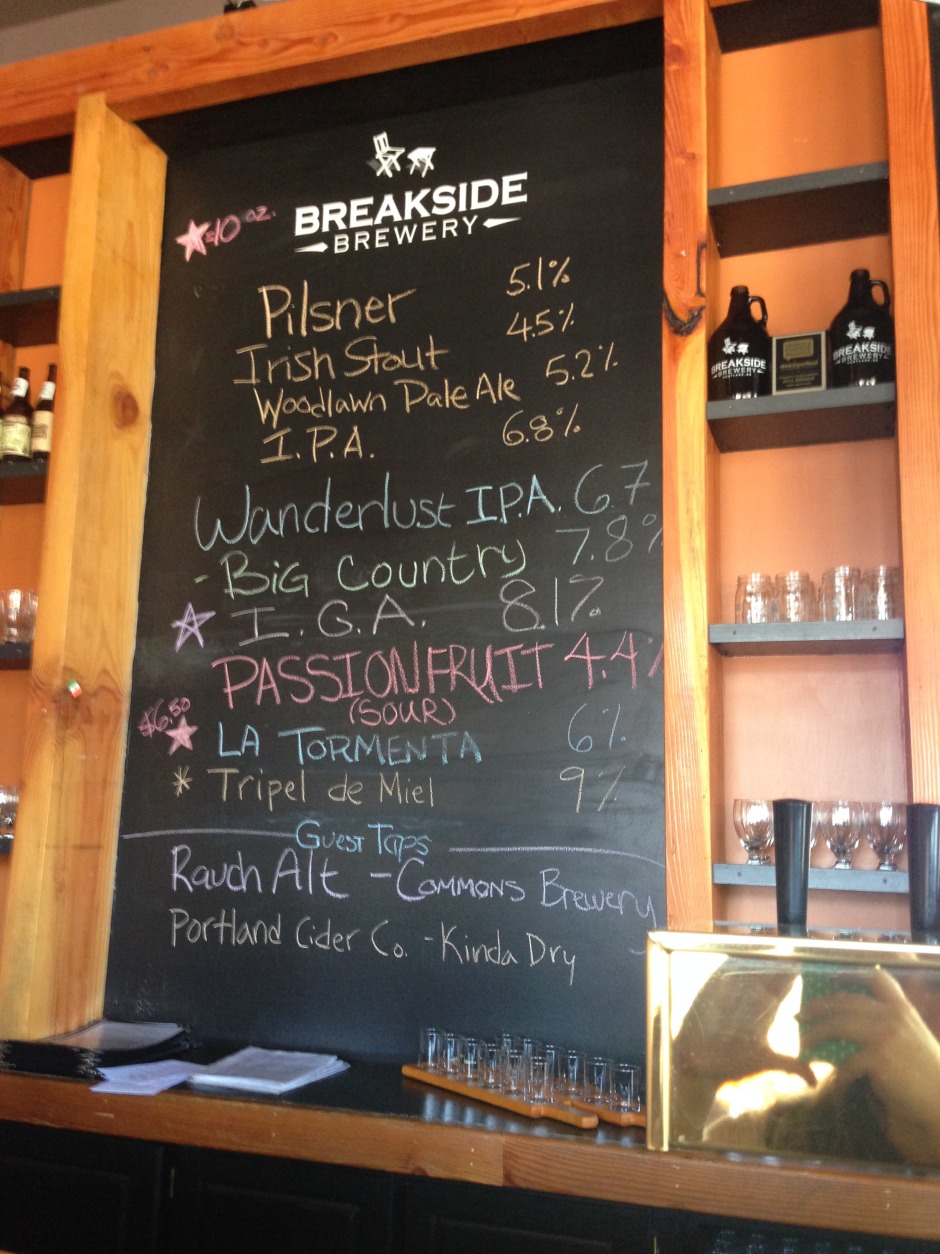 BREAKSIDE
BREWERY
=10 oz.
Pilsner 5.1%
Irish Stout 4.5%
Woodlawn Pale Ale 5.2%
I.P.A. 6.8%
Wanderlust I.P.A. 6.7
- BiG Country 7.8%
I.G.A. 8.1%
PASSIONFRUIT 4.4%
(SOUR)
$6.50
LA TORMENTA 6%
* Tripel de Miel 9%
Guest Taps
Rauch Alt - Commons Brewery
Portland Cider Co. - Kinda Dry
BREAKSIDE
BREWERY
BREAKSIDE
BREWERY